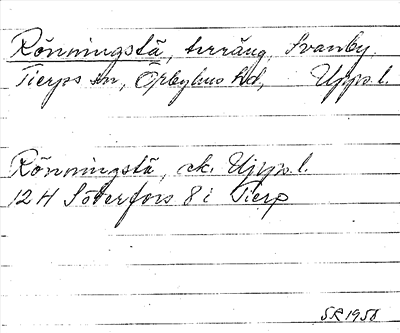 Rönningstä, terräng, Svanby,
Tierps sn, Örbyhus hd, Upps. l.
Rönningstä, ek. Upps. l.
12 H Söderfors 8 i Tierp
SR 1958